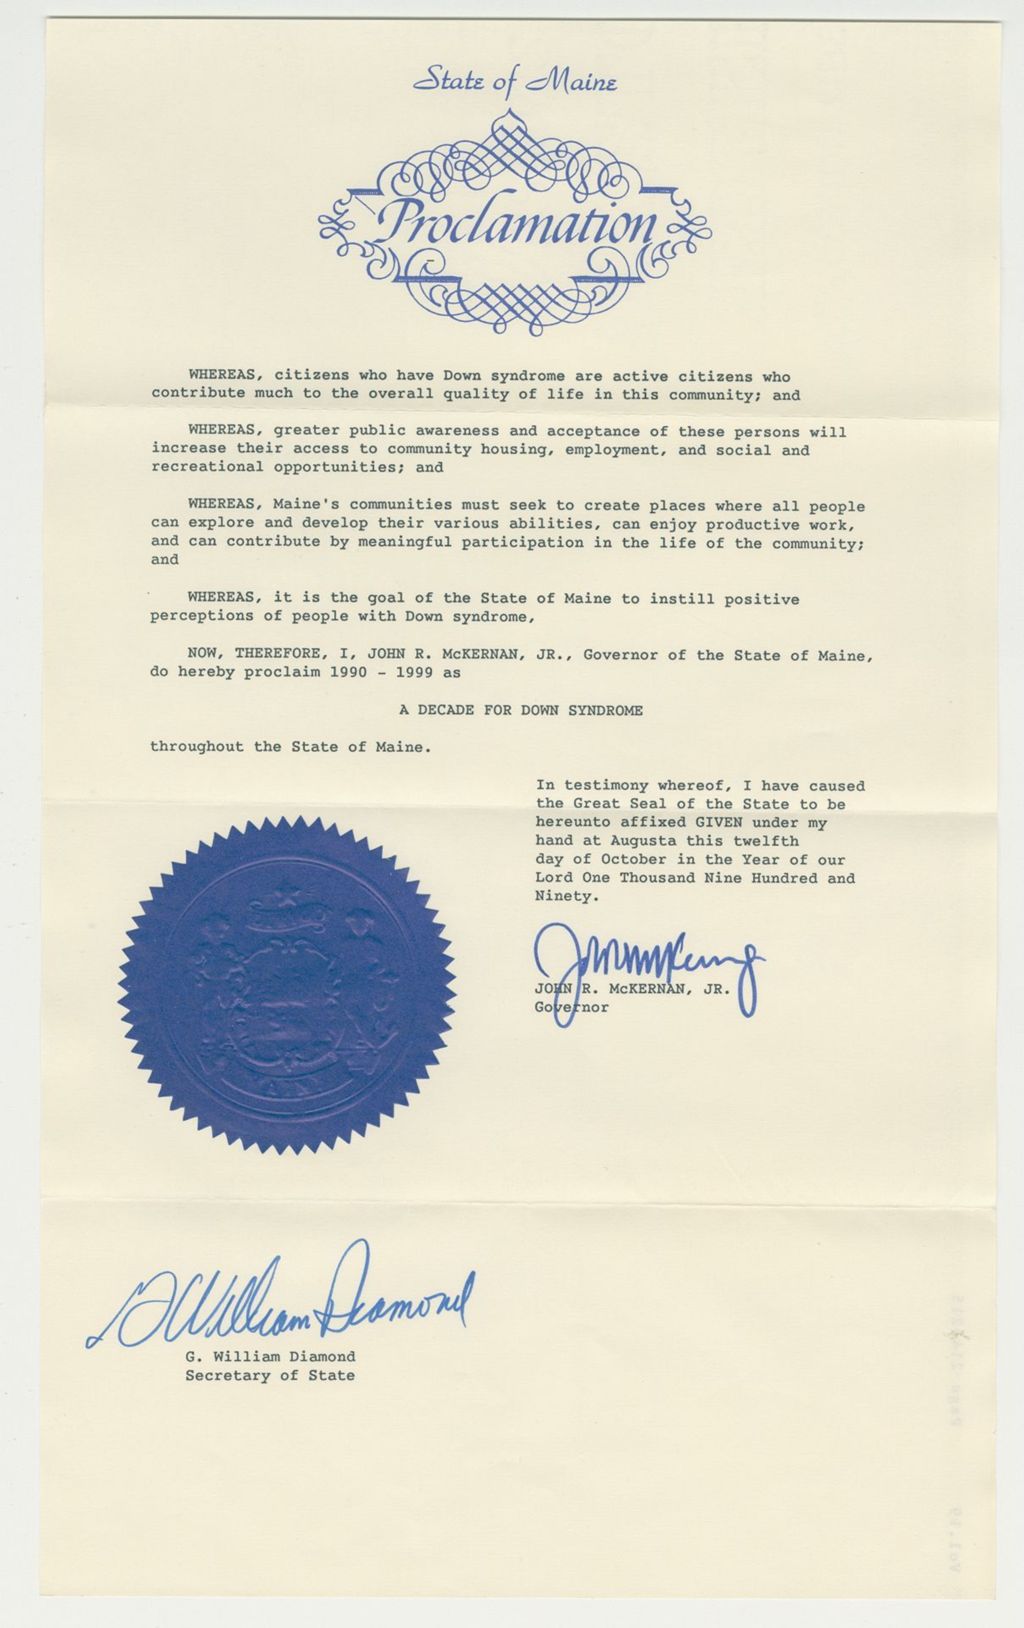 State of Maine
Proclamation
WHEREAS, citizens who have Down syndrome are active citizens who
contribute much to the overall quality of life in this community; and
WHEREAS, greater public awareness and acceptance of these persons will
increase their access to community housing, employment, and social and
recreational opportunities; and
WHEREAS, Maine's communities must seek to create places where all people
can explore and develop their various abilities, can enjoy productive work,
and can contribute by meaningful participation in the life of the community;
and
WHEREAS, it is the goal of the State of Maine to instill positive
perceptions of people with Down syndrome,
NOW, THEREFORE, I, JOHN R. McKERNAN, JR., Governor of the State of Maine,
do hereby proclaim 1990 - 1999 as
A DECADE FOR DOWN SYNDROME
throughout the State of Maine.
In testimony whereof, I have caused
the Great Seal of the State to be
hereunto affixed GIVEN under my
hand at Augusta this twelfth
day of October in the Year of our
Lord One Thousand Nine Hundred and
Ninety.
JOHN R. McKERNAN, JR.
Governor
MAINE
G William Diamond
G. William Diamond
Secretary of State